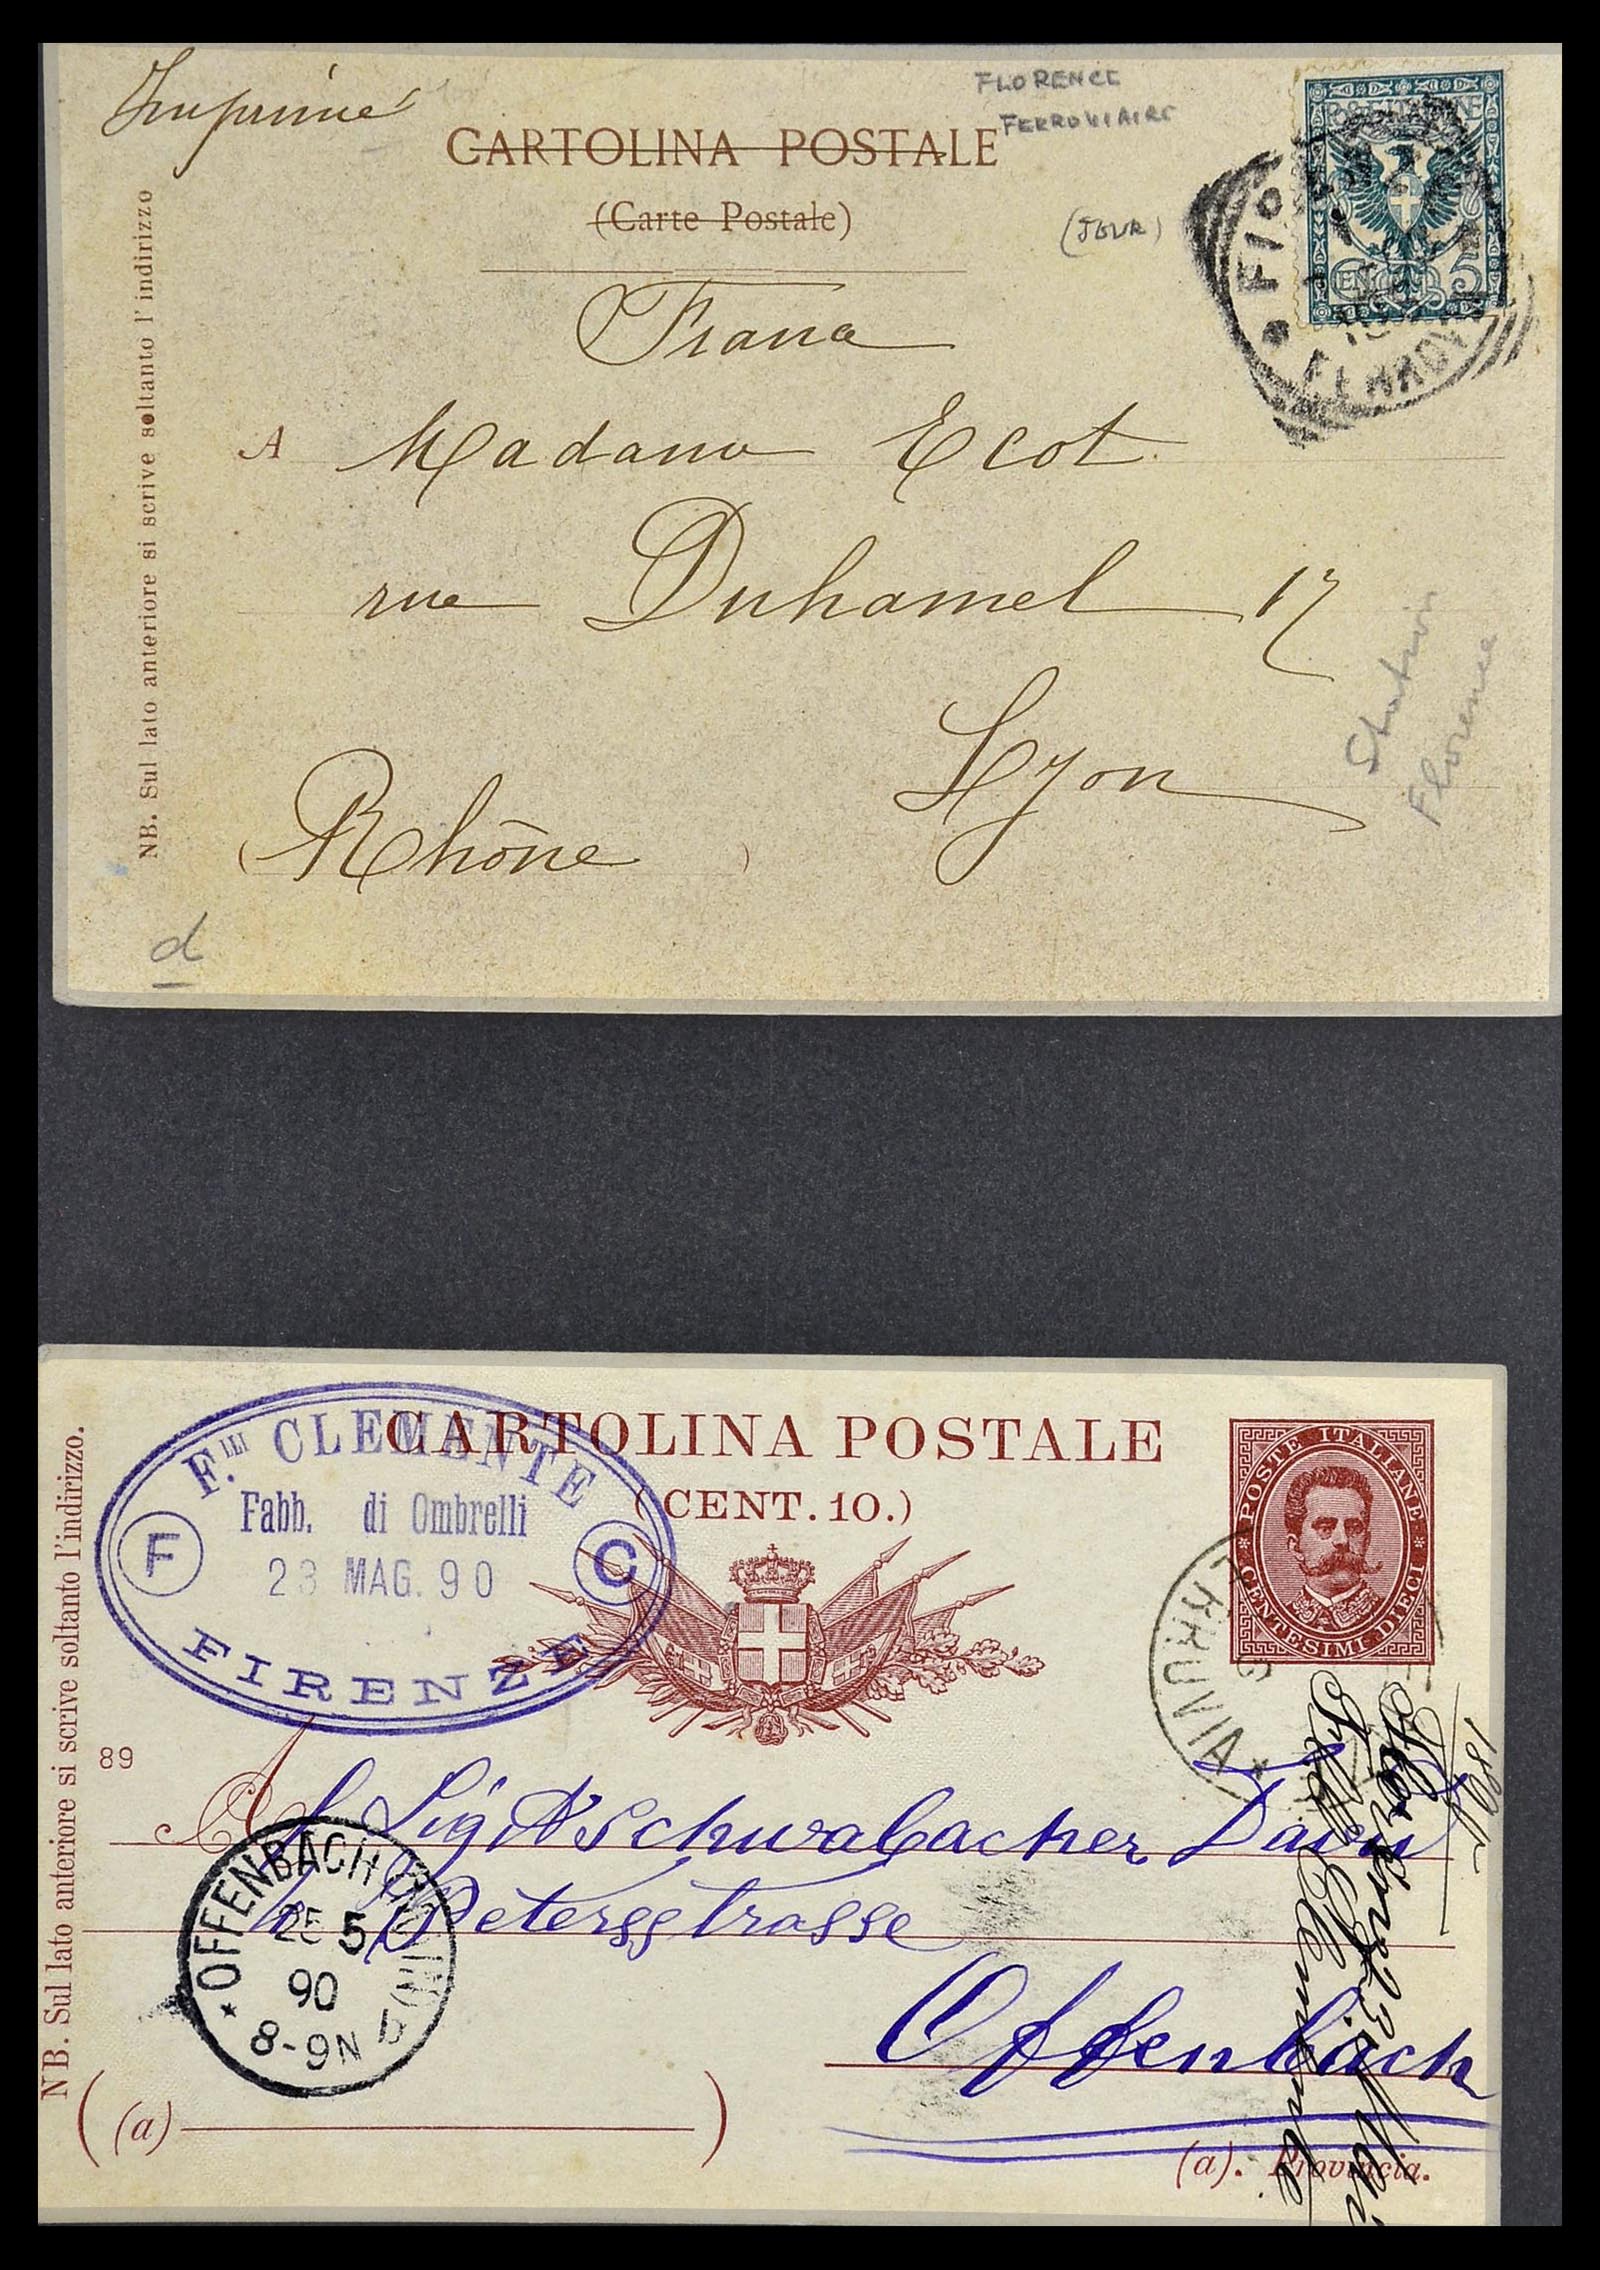 Imprimé
FLORENCE
FERROVIAIRE
CARTOLINA POSTALE
(Carte Postale)
(JOUR)
POSTE ITALIANE
CENTESIMI 5
FERROVIA
NB. Sul lato anteriore si scrive soltanto l'indirizzo
A Madame Ecot
rue Duhamel 17
Lyon
(Rhône)
Florence
d
CARTOLINA POSTALE
(CENT. 10.)
POSTE ITALIANE
CENTESIMI DIECI
F.LLI CLEMENTE
Fabb. di Ombrelli
F
C
23 MAG. 90
FIRENZE
FERROVIA
NB. Sul lato anteriore si scrive soltanto l'indirizzo.
89
Al Sig Schwabacher
Petersstrasse
Offenbach
OFFENBACH (MAIN)
5
90
8-9N
b
1890
(a)
(a). Provincia.